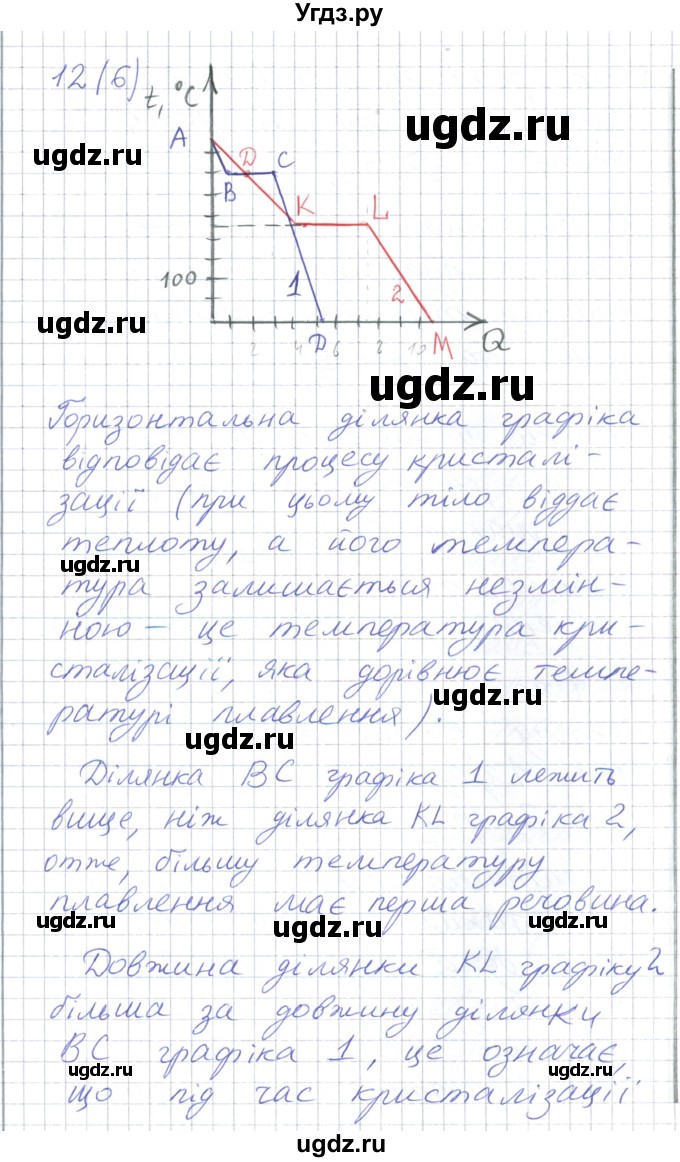 Угдз.ру
12 (6)
t, °C
ugdz.ru
ugdz.ru
A
D
C
B
K
L
100
1
2
ugdz.ru
2
4
D
6
8
10
M
Q
ugdz.ru
Горизонтальна ділянка графіка
відповідає процесу кристалі-
ugdz.ru
зації (при цьому тіло віддає
теплоту, а його темпера-
ugdz.ru
тура залишається незмін-
ною – це температура кри-
сталізації, яка дорівнює темпе-
ugdz.ru
ратурі плавлення).
ugdz.ru
Ділянка BC графіка 1 лежить
вище, ніж ділянка KL графіка 2,
отже, більшу температуру
плавлення має перша речовина.
ugdz.ru
ugdz.ru
ugdz.ru
Довжина ділянки KL графіку 2
більша за довжину ділянки
BC графіка 1, це означає,
ugdz.ru
ugdz.ru
що під час кристалізації
ugdz.ru